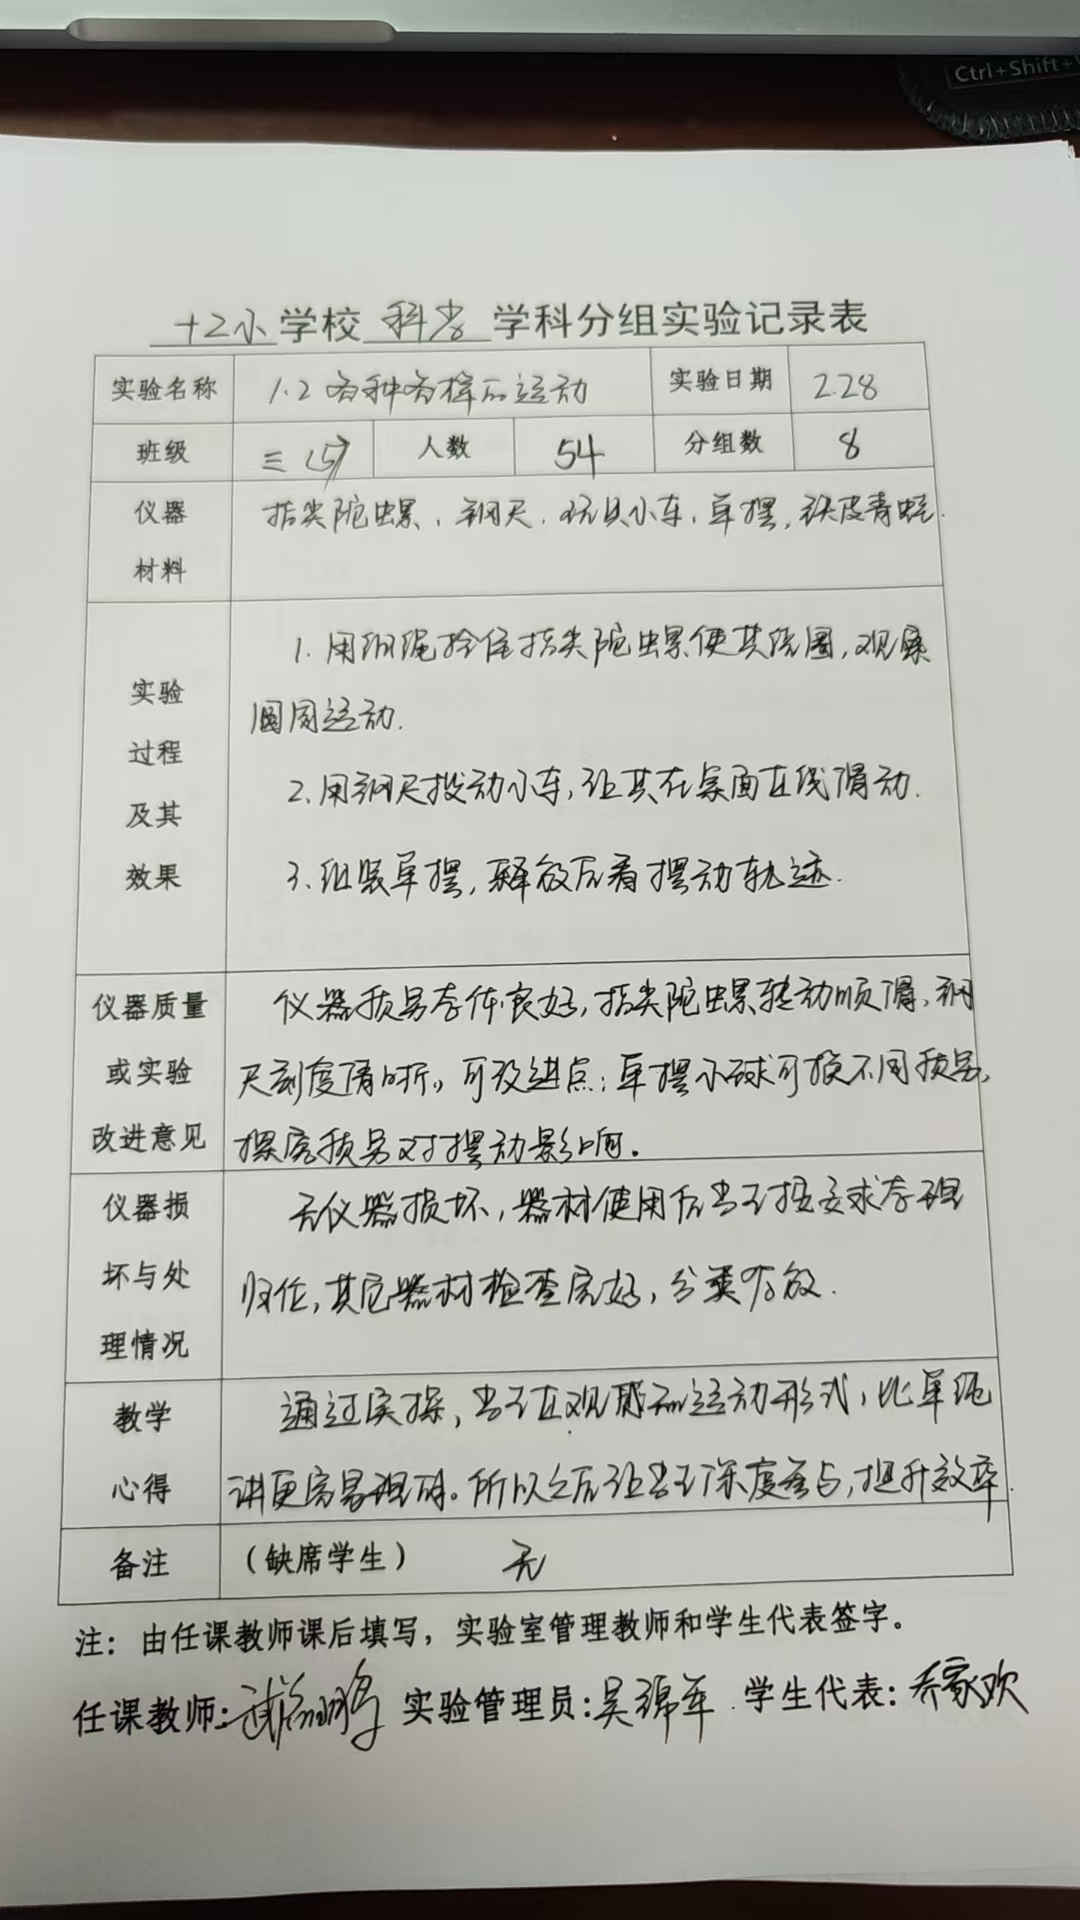 Ctrl+Shift+
十二小学校 科学 学科分组实验记录表
实验名称 1.2各种各样的运动 实验日期 2.28
班级 三(5) 人数 54 分组数 8
仪器 指尖陀螺、钢尺、玩具小车、单摆、铁皮青蛙.
材料
1.用细绳拴住指尖陀螺使其绕圈,观察
实验
圆周运动.
过程
2.用钢尺拨动小车,让其在桌面直线滑动.
及其
效果 3.组装单摆,释放后看摆动轨迹.
仪器质量 仪器质量整体良好,指尖陀螺转动顺滑、钢
或实验 尺刻度清晰。可改进点:单摆小球可换不同质量,
改进意见 探究质量对摆动影响。
仪器损 无仪器损坏,器材使用后学生按要求整理
坏与处 归位,其它器材检查完好,分类存放.
理情况
教学 通过实操,学生直观感知运动形式,比单纯
心得 讲更容易理解。所以之后让学生深度参与,提升效率.
备注 (缺席学生) 无
注:由任课教师课后填写,实验室管理教师和学生代表签字。
任课教师: 实验管理员:吴锦军 学生代表:乔家欢